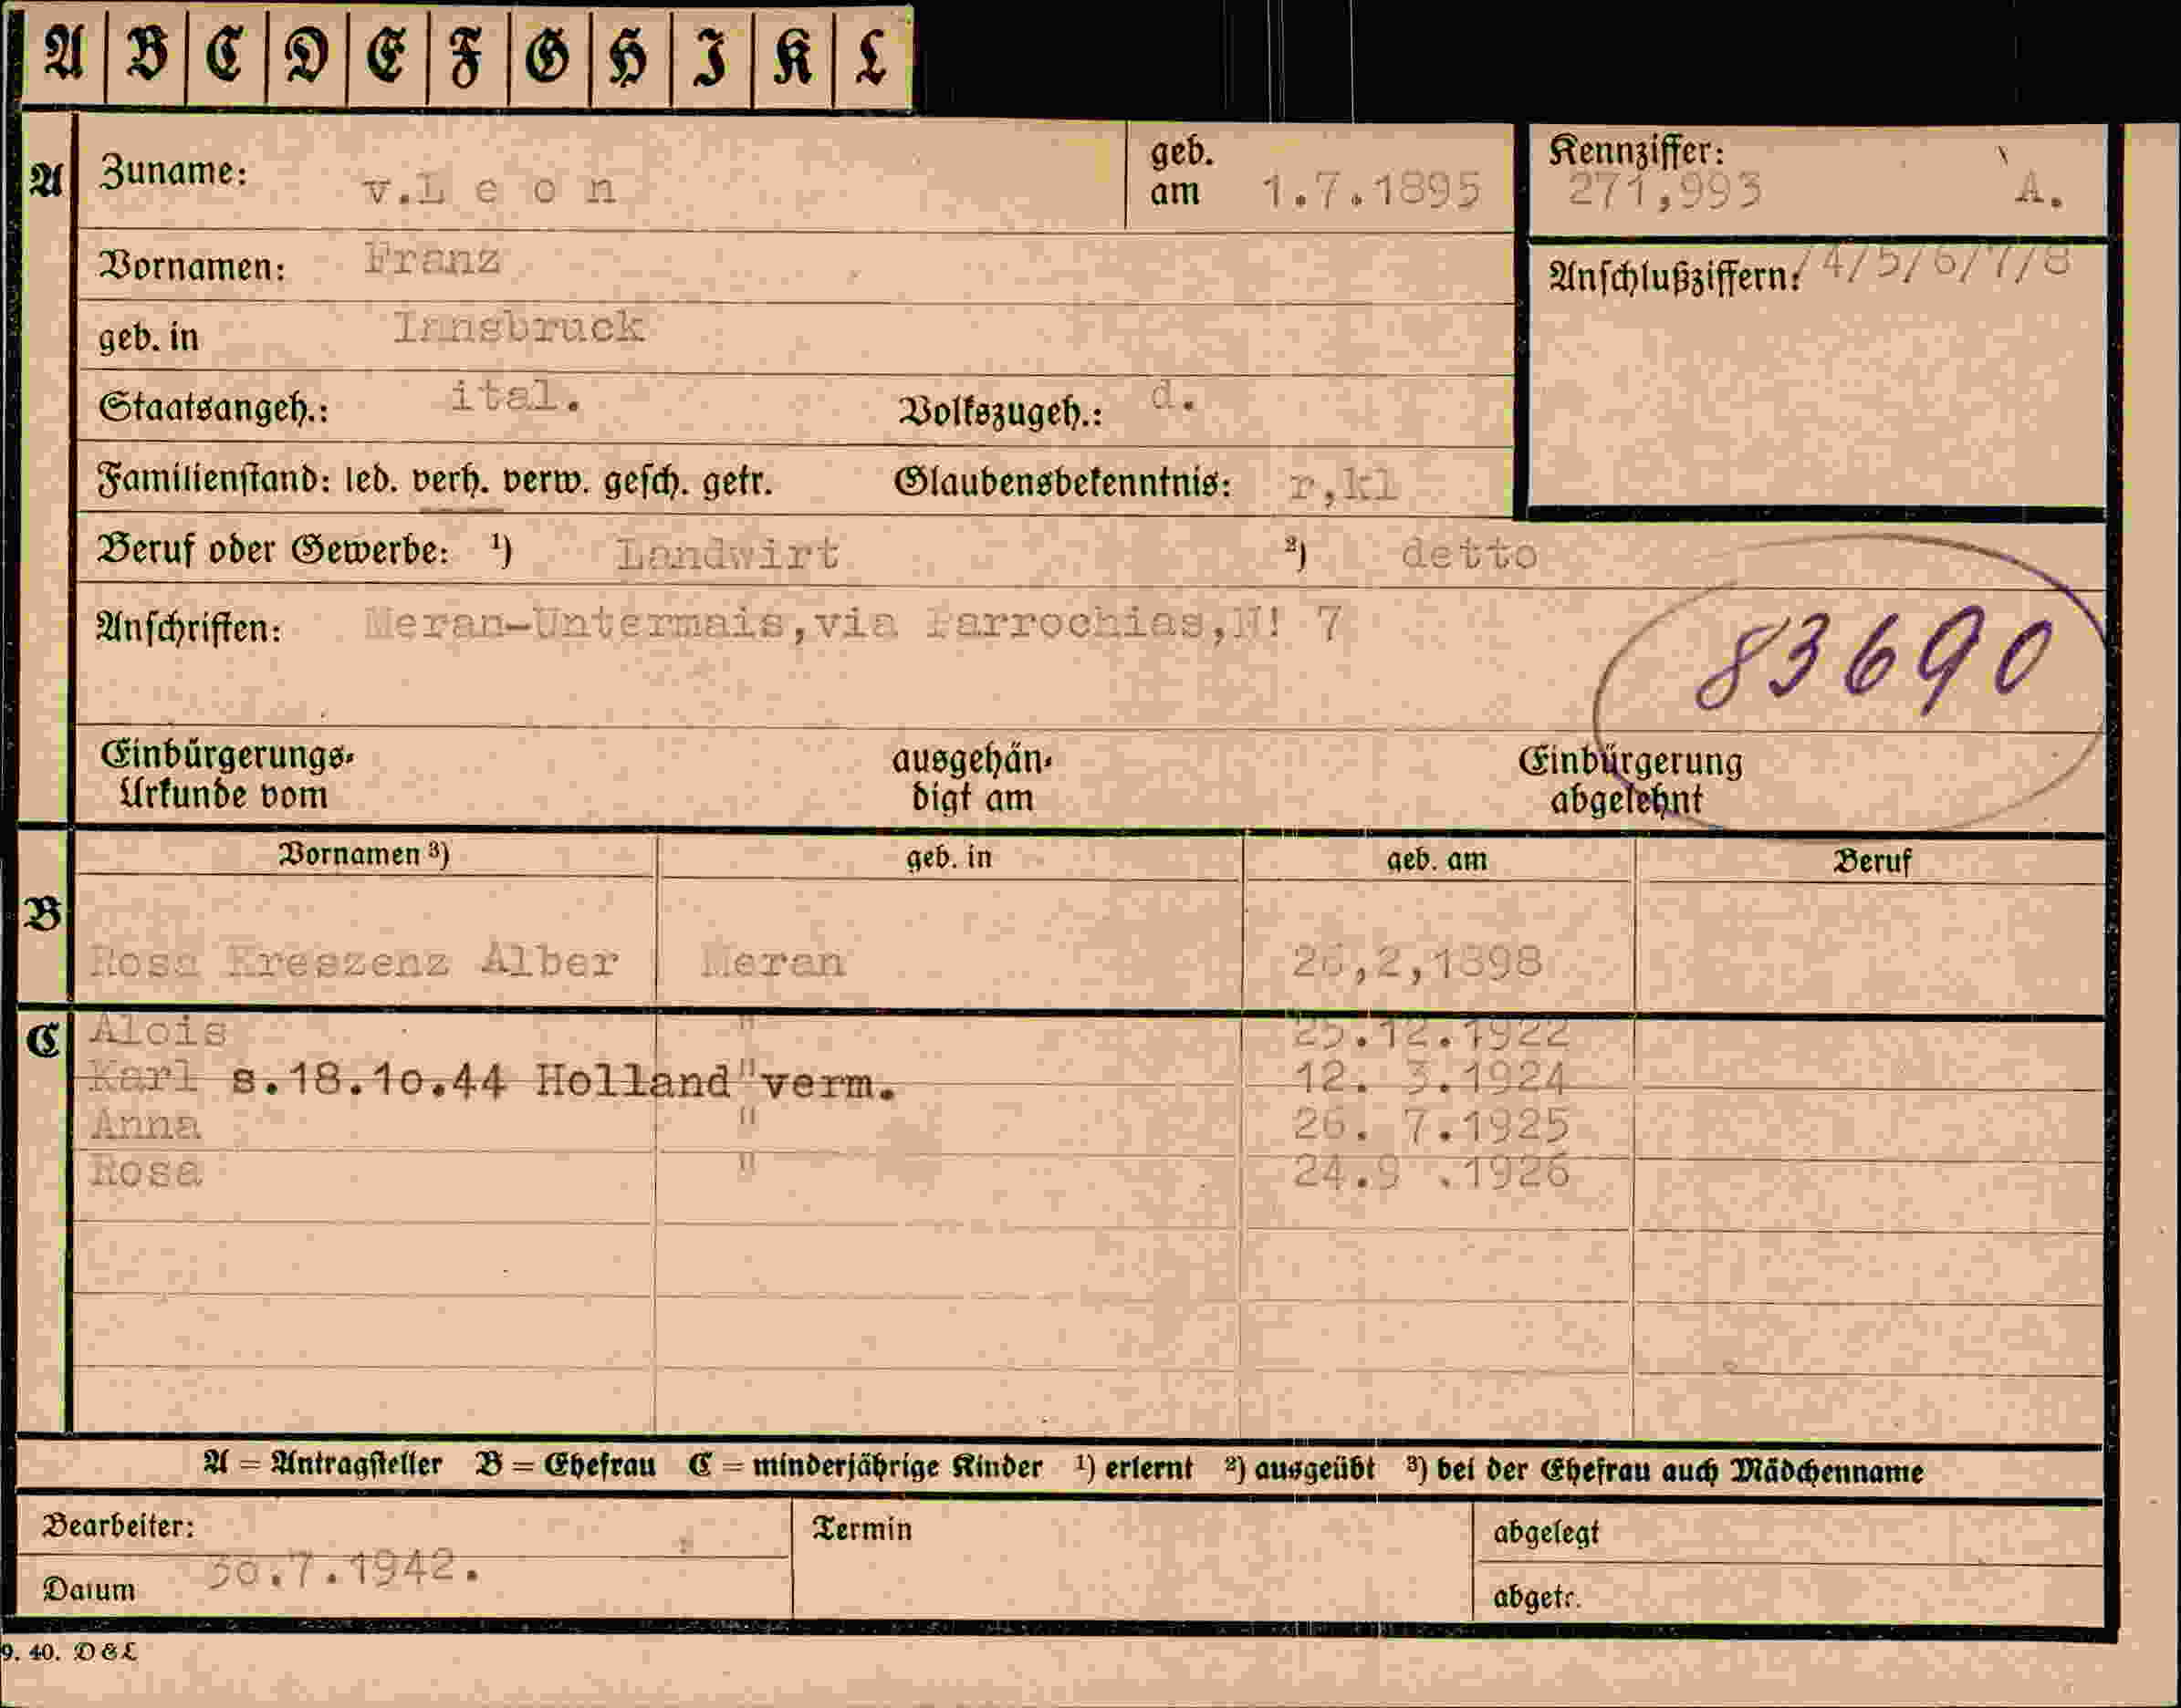 A B C D E F G H I K L
A Zuname: v.L e o n geb. am 1.7.1895 Kennziffer: 271,993 A.
Vornamen: Franz Anschlußziffern: /4/5/6/7/8
geb. in Innsbruck
Staatsangeh.: ital. Volkszugeh.: d.
Familienstand: led. verh. verw. gesch. getr. Glaubensbekenntnis: r,kl
Beruf oder Gewerbe: ¹) Landwirt ²) detto
Anschriften: Meran-Untermais,via Parrochias,N! 7
83690
Einbürgerungs-Urkunde vom ausgehändigt am Einbürgerung abgelehnt
Vornamen ³) geb. in geb. am Beruf
B Rosa Kreszenz Alber Meran 26,2,1898
C Alois " 25.12.1922
Karl s.18.10.44 Holland "verm. 12. 3.1924
Anna " 26. 7.1925
Rosa " 24.9 .1926
A = Antragsteller B = Ehefrau C = minderjährige Kinder ¹) erlernt ²) ausgeübt ³) bei der Ehefrau auch Mädchenname
Bearbeiter: Termin abgelegt
Datum 30.7.1942. abgetr.
9. 40. D&L